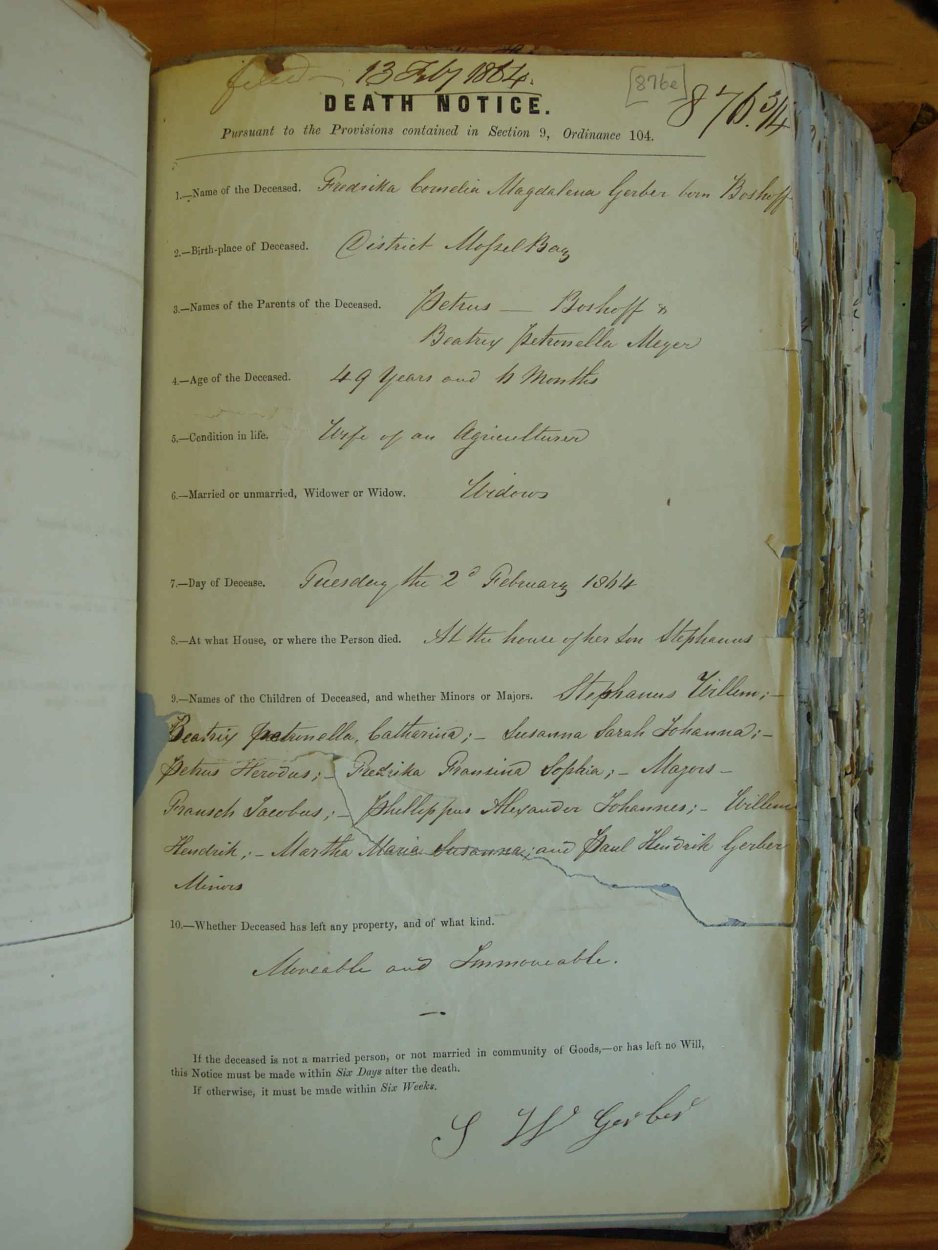 filed 13 Feby 1864.
[876e]
876.3/4
DEATH NOTICE.
Pursuant to the Provisions contained in Section 9, Ordinance 104.
1.—Name of the Deceased. Fredrika Cornelia Magdalena Gerber born Boshoff
2.—Birth-place of Deceased. District Mossel Bay
3.—Names of the Parents of the Deceased. Petrus — Boshoff &
Beatrix Petronella Meyer
4.—Age of the Deceased. 49 Years and Months
5.—Condition in life. Wife of an Agriculturer
6.—Married or unmarried, Widower or Widow. Widow
7.—Day of Decease. Tuesday the 2d February 1864
8.—At what House, or where the Person died. At the house of her Son Stephanus
9.—Names of the Children of Deceased, and whether Minors or Majors. Stephanus Willem;–
Beatrix Petronella, Catharina;– Susanna Sarah Johanna;–
Petrus Herodus;– Fredrika Fransina Sophia;– Majors–
Fransch Jacobus;– Phillippus Alexander Johannes;– Willem
Hendrik;– Martha Maria Susanna; and Paul Hendrik Gerber
Minors
10.—Whether Deceased has left any property, and of what kind.
Moveable and Immoveable.
—
If the deceased is not a married person, or not married in community of Goods,—or has left no Will,
this Notice must be made within Six Days after the death.
If otherwise, it must be made within Six Weeks.
S W Gerber